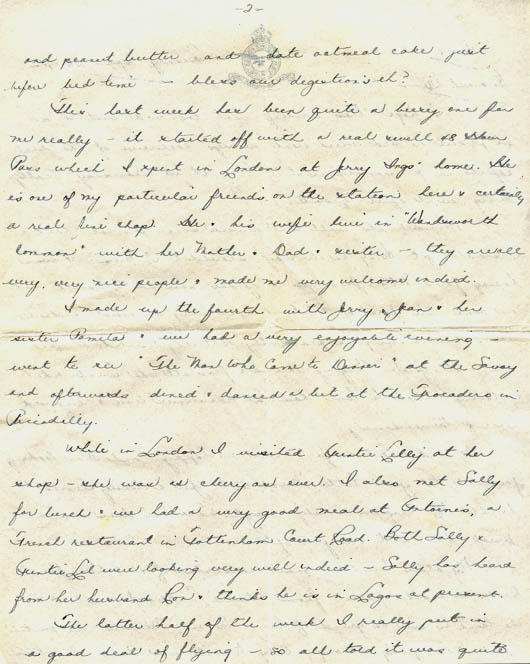 -2-
and peanut butter and date oatmeal cake just
before bed time - bless our digestions eh?
This last week has been quite a busy one for
me really - it started off with a real swell 48 Hour
Pass which I spent in London at Jerry Ings' home. He
is one of my particular friends on the station here & certainly
a real fine chap. He & his wife live in "Wandsworth
Common" with her Mother & Dad & sister - they are all
very, very nice people & made me very welcome indeed.
I made up the fourth with Jerry & Jean & her
sister Pamela & we had a very enjoyable evening -
went to see "The Man Who Came to Dinner" at the Savoy
and afterwards dined & danced a bit at the Trocadero in
Piccadilly.
While in London I visited Auntie Lilly at her
shop - she was as cheery as ever. I also met Sally
for lunch & we had a very good meal at Antoine's, a
French restaurant in Tottenham Court Road. Both Sally &
Auntie Lil were looking very well indeed - Sally has heard
from her husband Ron & thinks he is in Lagos at present.
The latter half of the week I really put in
a good deal of flying - so all told it was quite